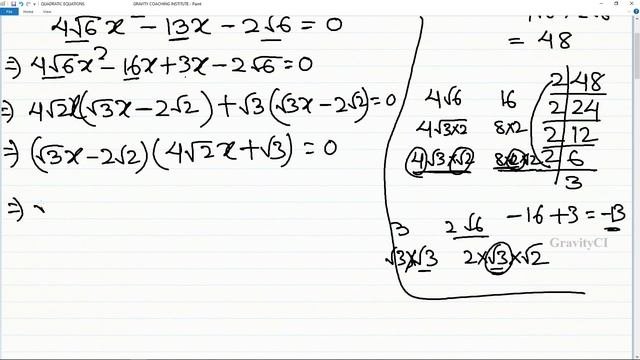 QUADRATIC EQUATIONS GRAVITY COACHING INSTITUTE - Paint
4√6x² - 13x - 2√6 = 0
⇒ 4√6x² - 16x + 3x - 2√6 = 0
⇒ 4√2x(√3x - 2√2) + √3(√3x - 2√2) = 0
⇒ (√3x - 2√2)(4√2x + √3) = 0
⇒
= 48
4√6 16
4√3×2 8×2
4√3×√2 8×2×2
2 48
2 24
2 12
2 6
3
-16 + 3 = -13
3 2√6
√3×√3 2×√3×√2
GravityCI